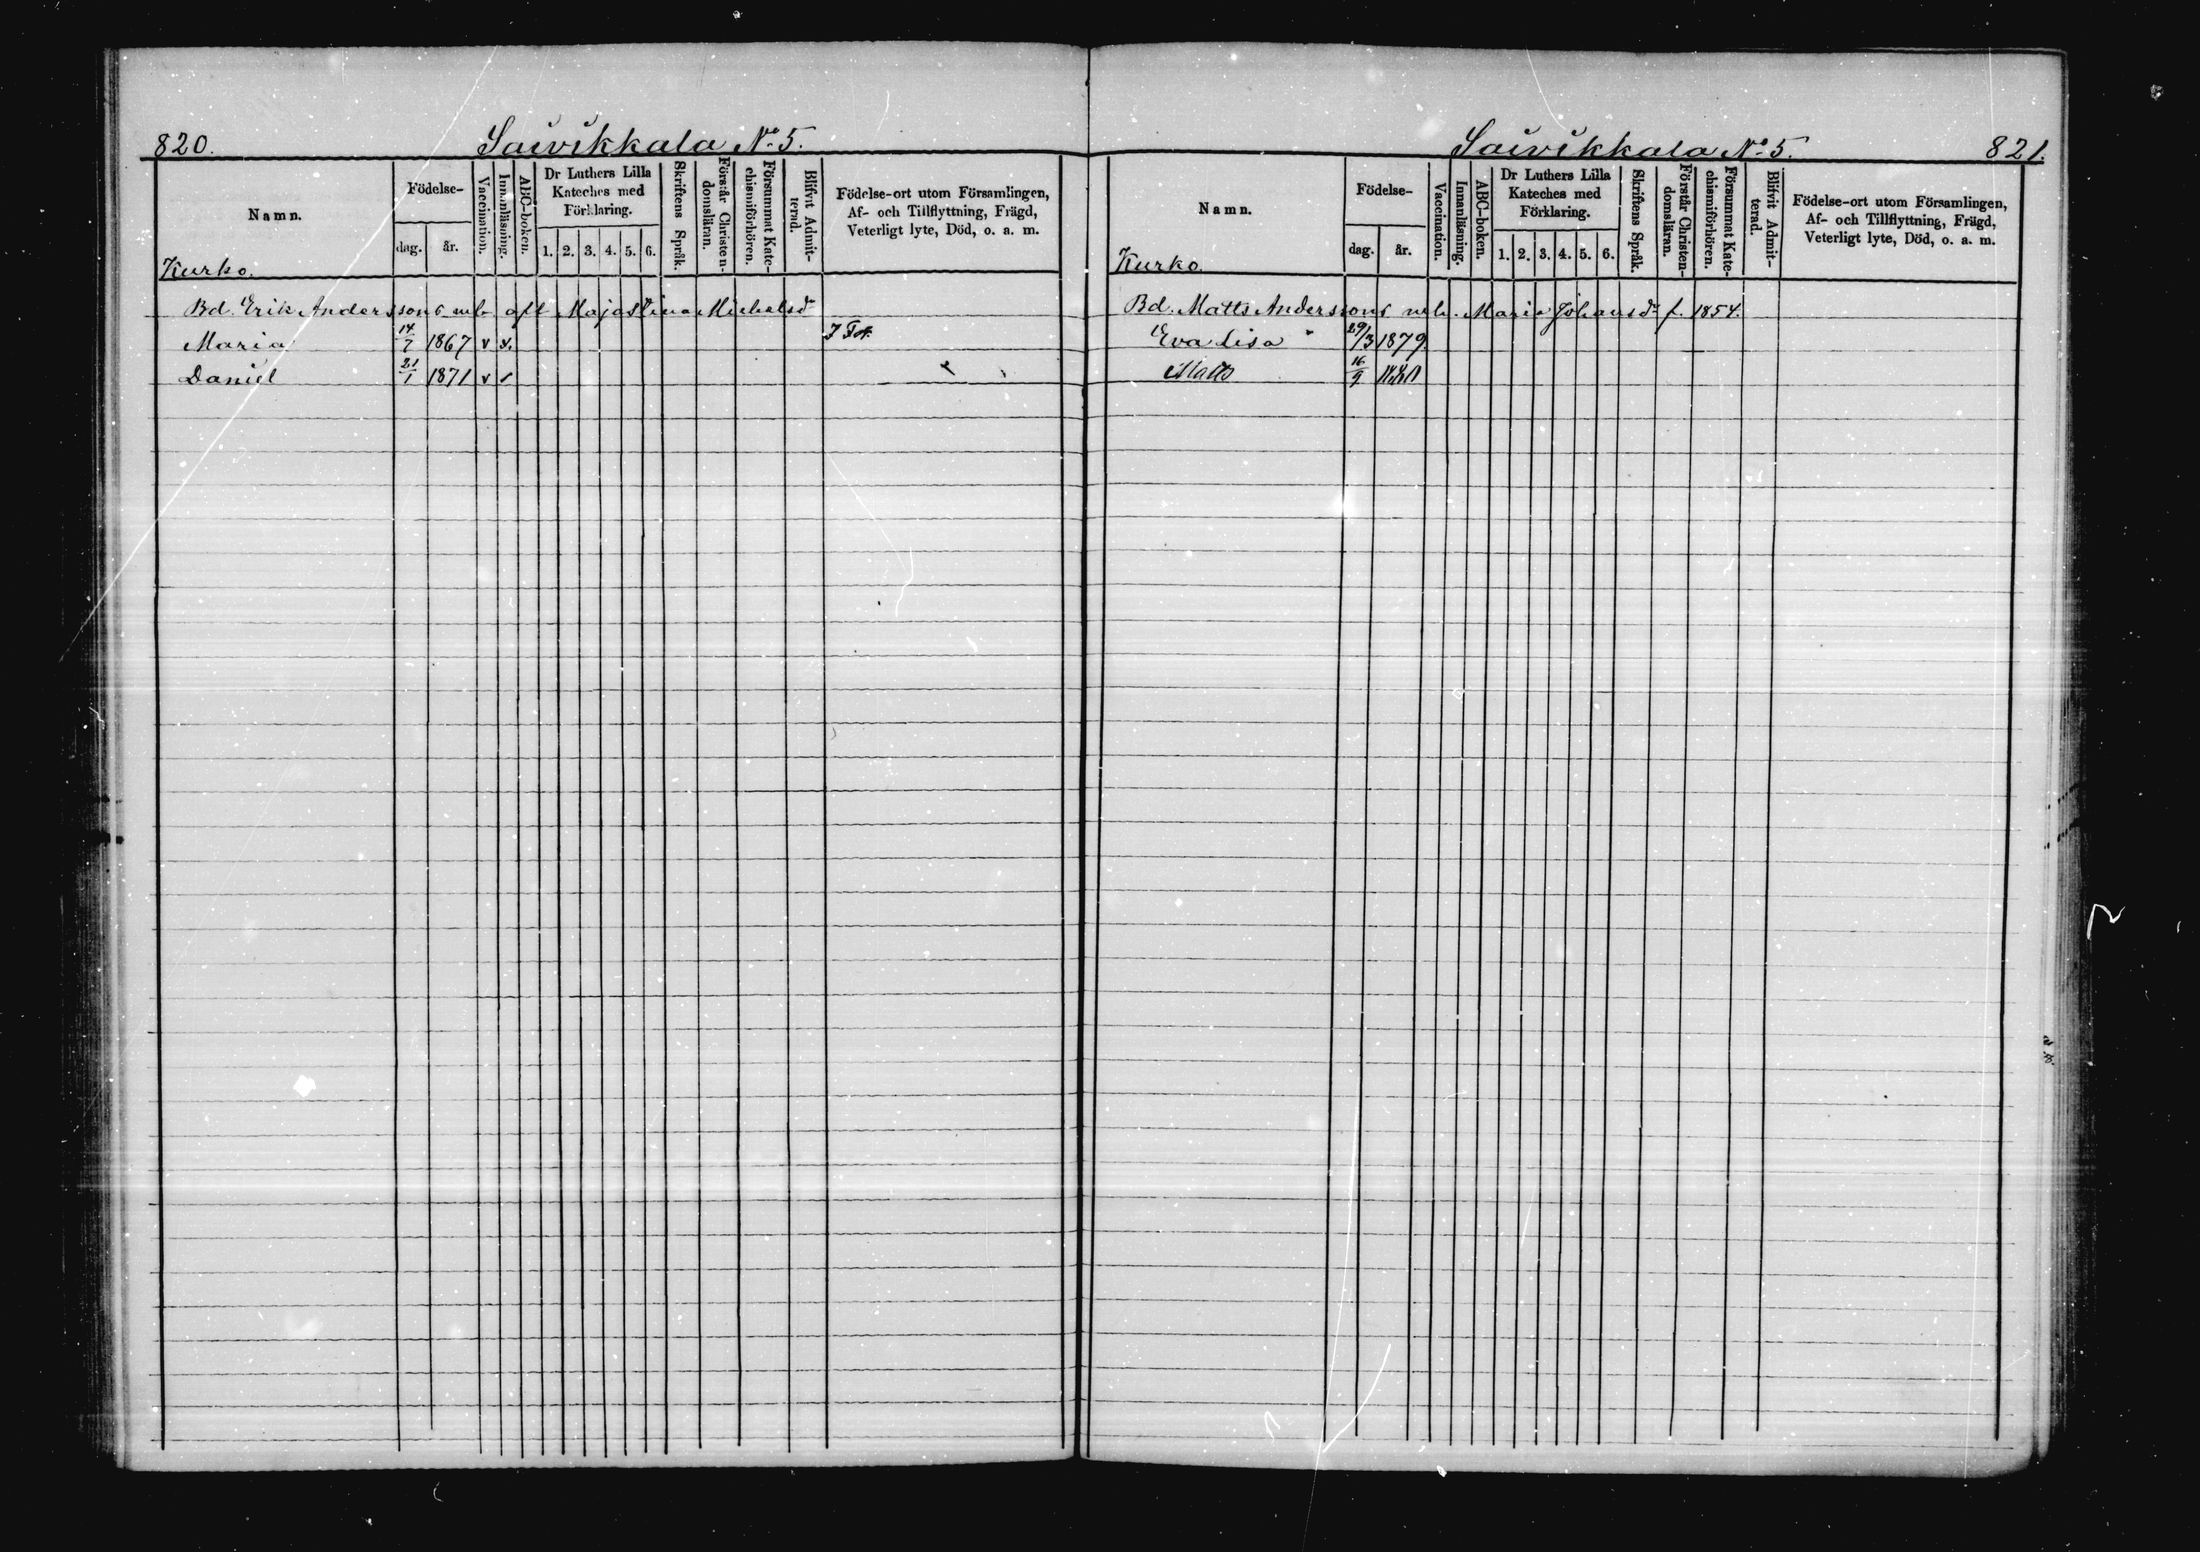 820. Saivikkala No 5.
Namn. Födelse- dag. år. Vaccination. Innanläsning. ABC-boken. Dr Luthers Lilla Kateches med Förklaring. 1. 2. 3. 4. 5. 6. Skriftens Språk. Förstår Christendomsläran. Försummat Katechismiförhören. Blifvit Admitterad. Födelse-ort utom Församlingen, Af- och Tillflyttning, Frägd, Veterligt lyte, Död, o. a. m.
Kurko.
Bd. Erik Anderssons enk. aft Maja Stina Michelsdr
Maria 14/7 1867 v v.
Daniel 21/1 1871 v v
Saivikkala No 5. 821.
Namn. Födelse- dag. år. Vaccination. Innanläsning. ABC-boken. Dr Luthers Lilla Kateches med Förklaring. 1. 2. 3. 4. 5. 6. Skriftens Språk. Förstår Christendomsläran. Försummat Katechismiförhören. Blifvit Admitterad. Födelse-ort utom Församlingen, Af- och Tillflyttning, Frägd, Veterligt lyte, Död, o. a. m.
Kurko.
Bd. Matts Anderssons Maria Johansdr f. 1854.
Eva Lisa 29/3 1879.
Matts 16/9